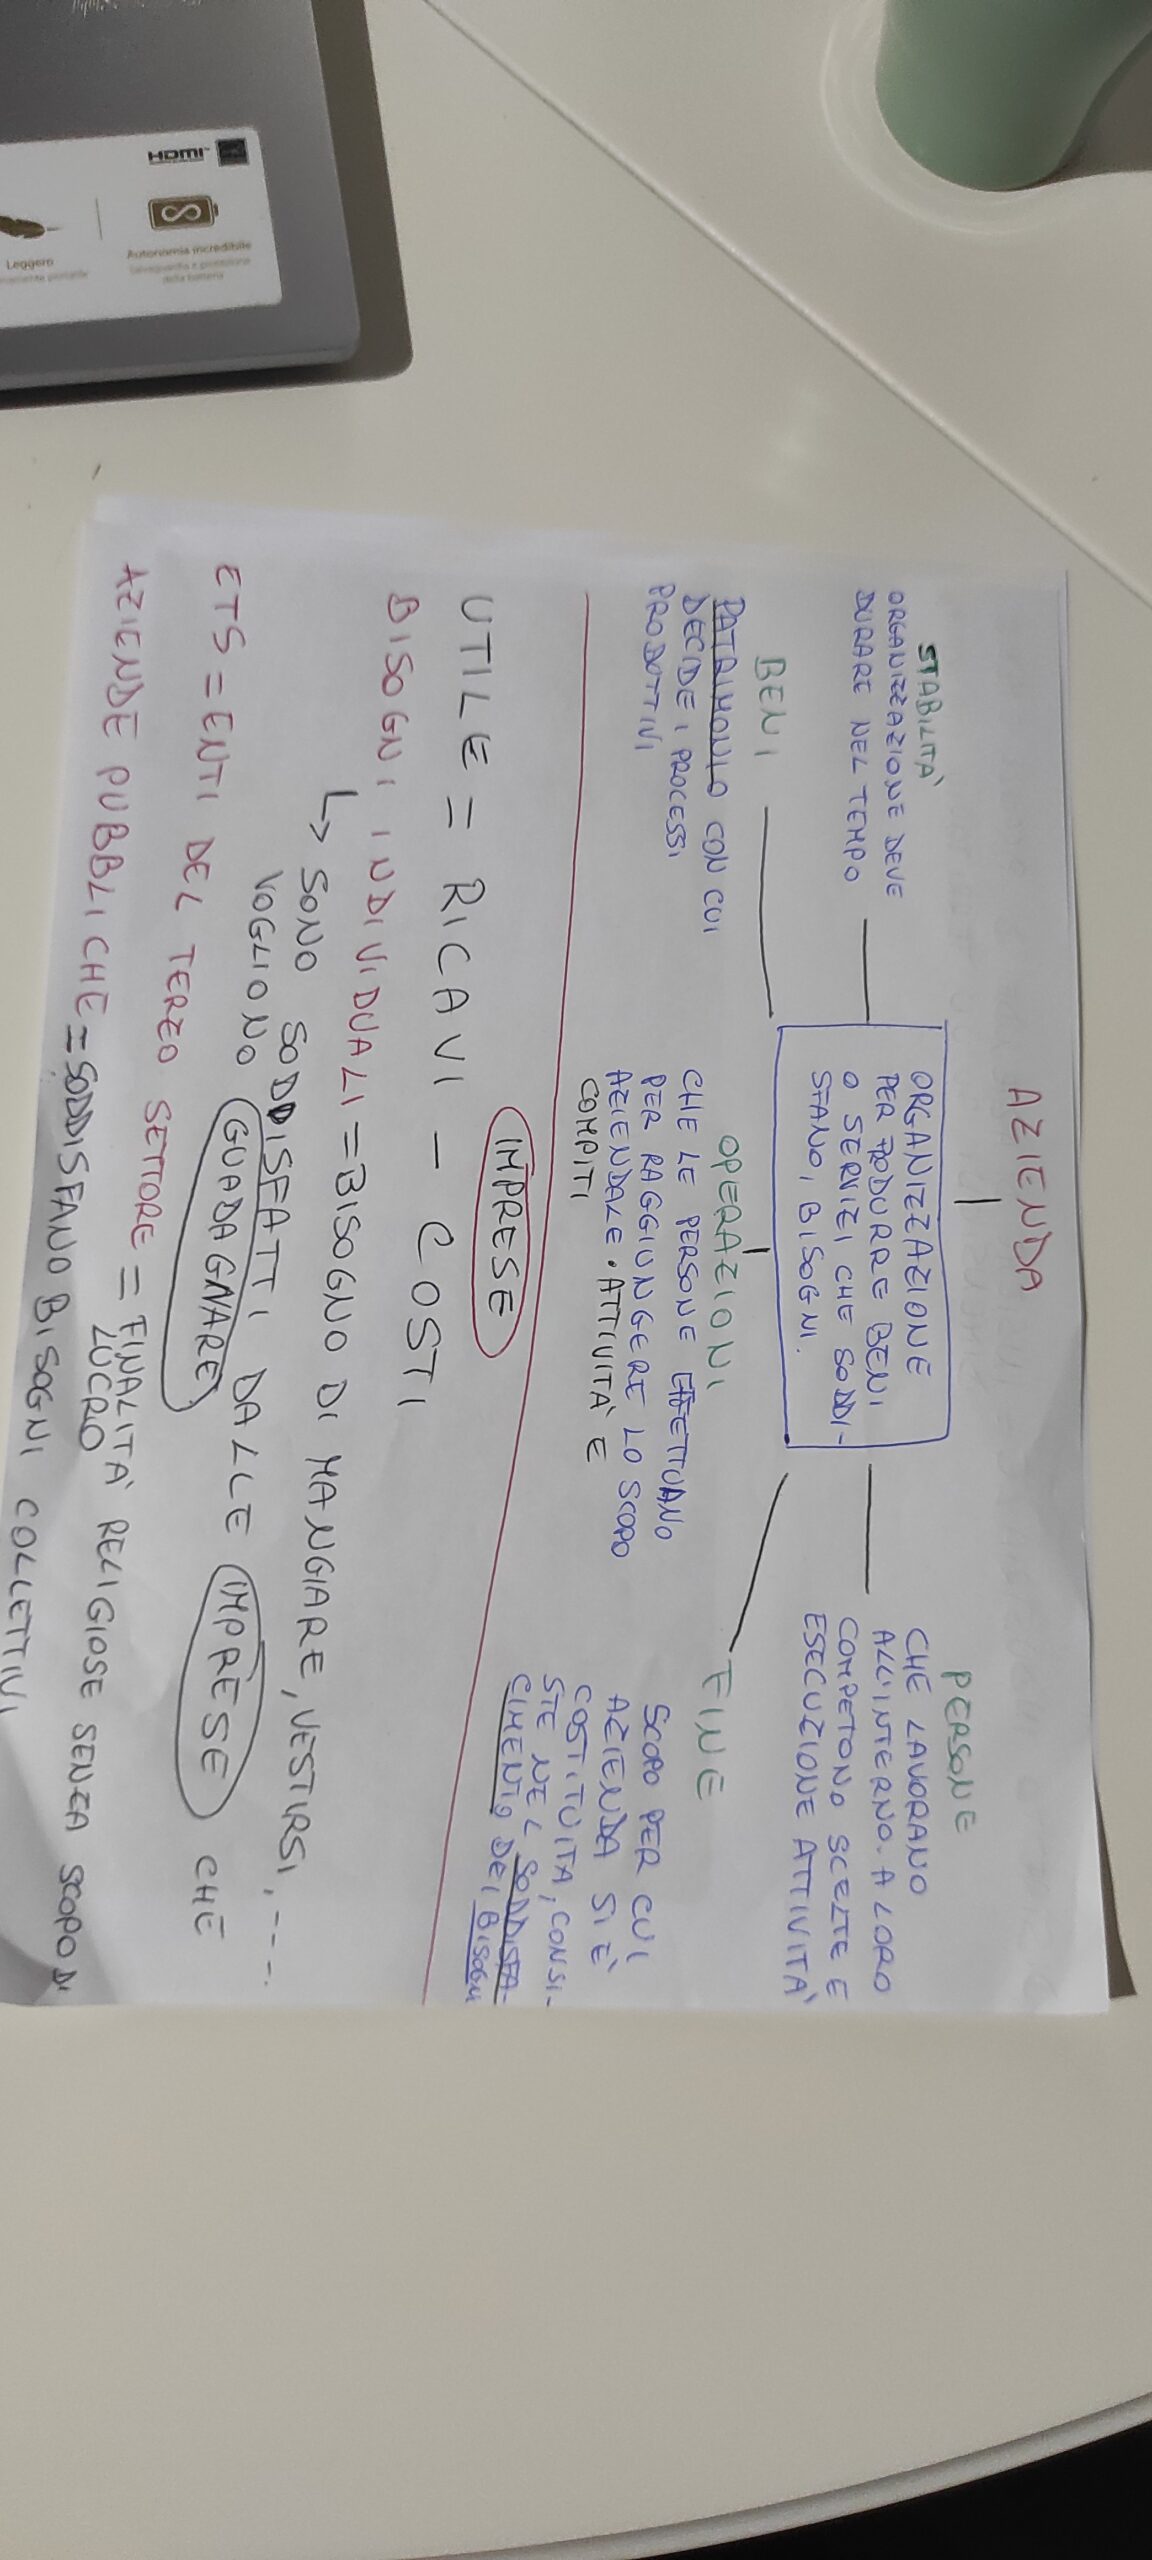 AZIENDA
ORGANIZZAZIONE
PER PRODURRE BENI
O SERVIZI CHE SODDI-
SFANO I BISOGNI.
STABILITÀ
ORGANIZZAZIONE DEVE
DURARE NEL TEMPO
PERSONE
CHE LAVORANO
ALL'INTERNO. A LORO
COMPETONO SCELTE E
ESECUZIONE ATTIVITÀ
BENI
PATRIMONIO CON CUI
DECIDE I PROCESSI
PRODOTTIVI
OPERAZIONI
CHE LE PERSONE EFFETTUANO
PER RAGGIUNGERE LO SCOPO
AZIENDALE. ATTIVITÀ E
COMPITI
FINE
SCOPO PER CUI
AZIENDA SI È
COSTITUITA, CONSI-
STE NEL SODDISFA-
CIMENTO DEI BISOGNI
IMPRESE
UTILE = RICAVI - COSTI
BISOGNI INDIVIDUALI = BISOGNO DI MANGIARE, VESTIRSI,....
↳ SONO SODDISFATTI DALLE IMPRESE CHE
VOGLIONO GUADAGNARE
ETS = ENTI DEL TERZO SETTORE = FINALITÀ RELIGIOSE SENZA SCOPO DI
LUCRO
AZIENDE PUBBLICHE = SODDISFANO BISOGNI COLLETTIVI
HDMI
Autonomia incredibile
Salvaguardia e protezione
della batteria
Leggero